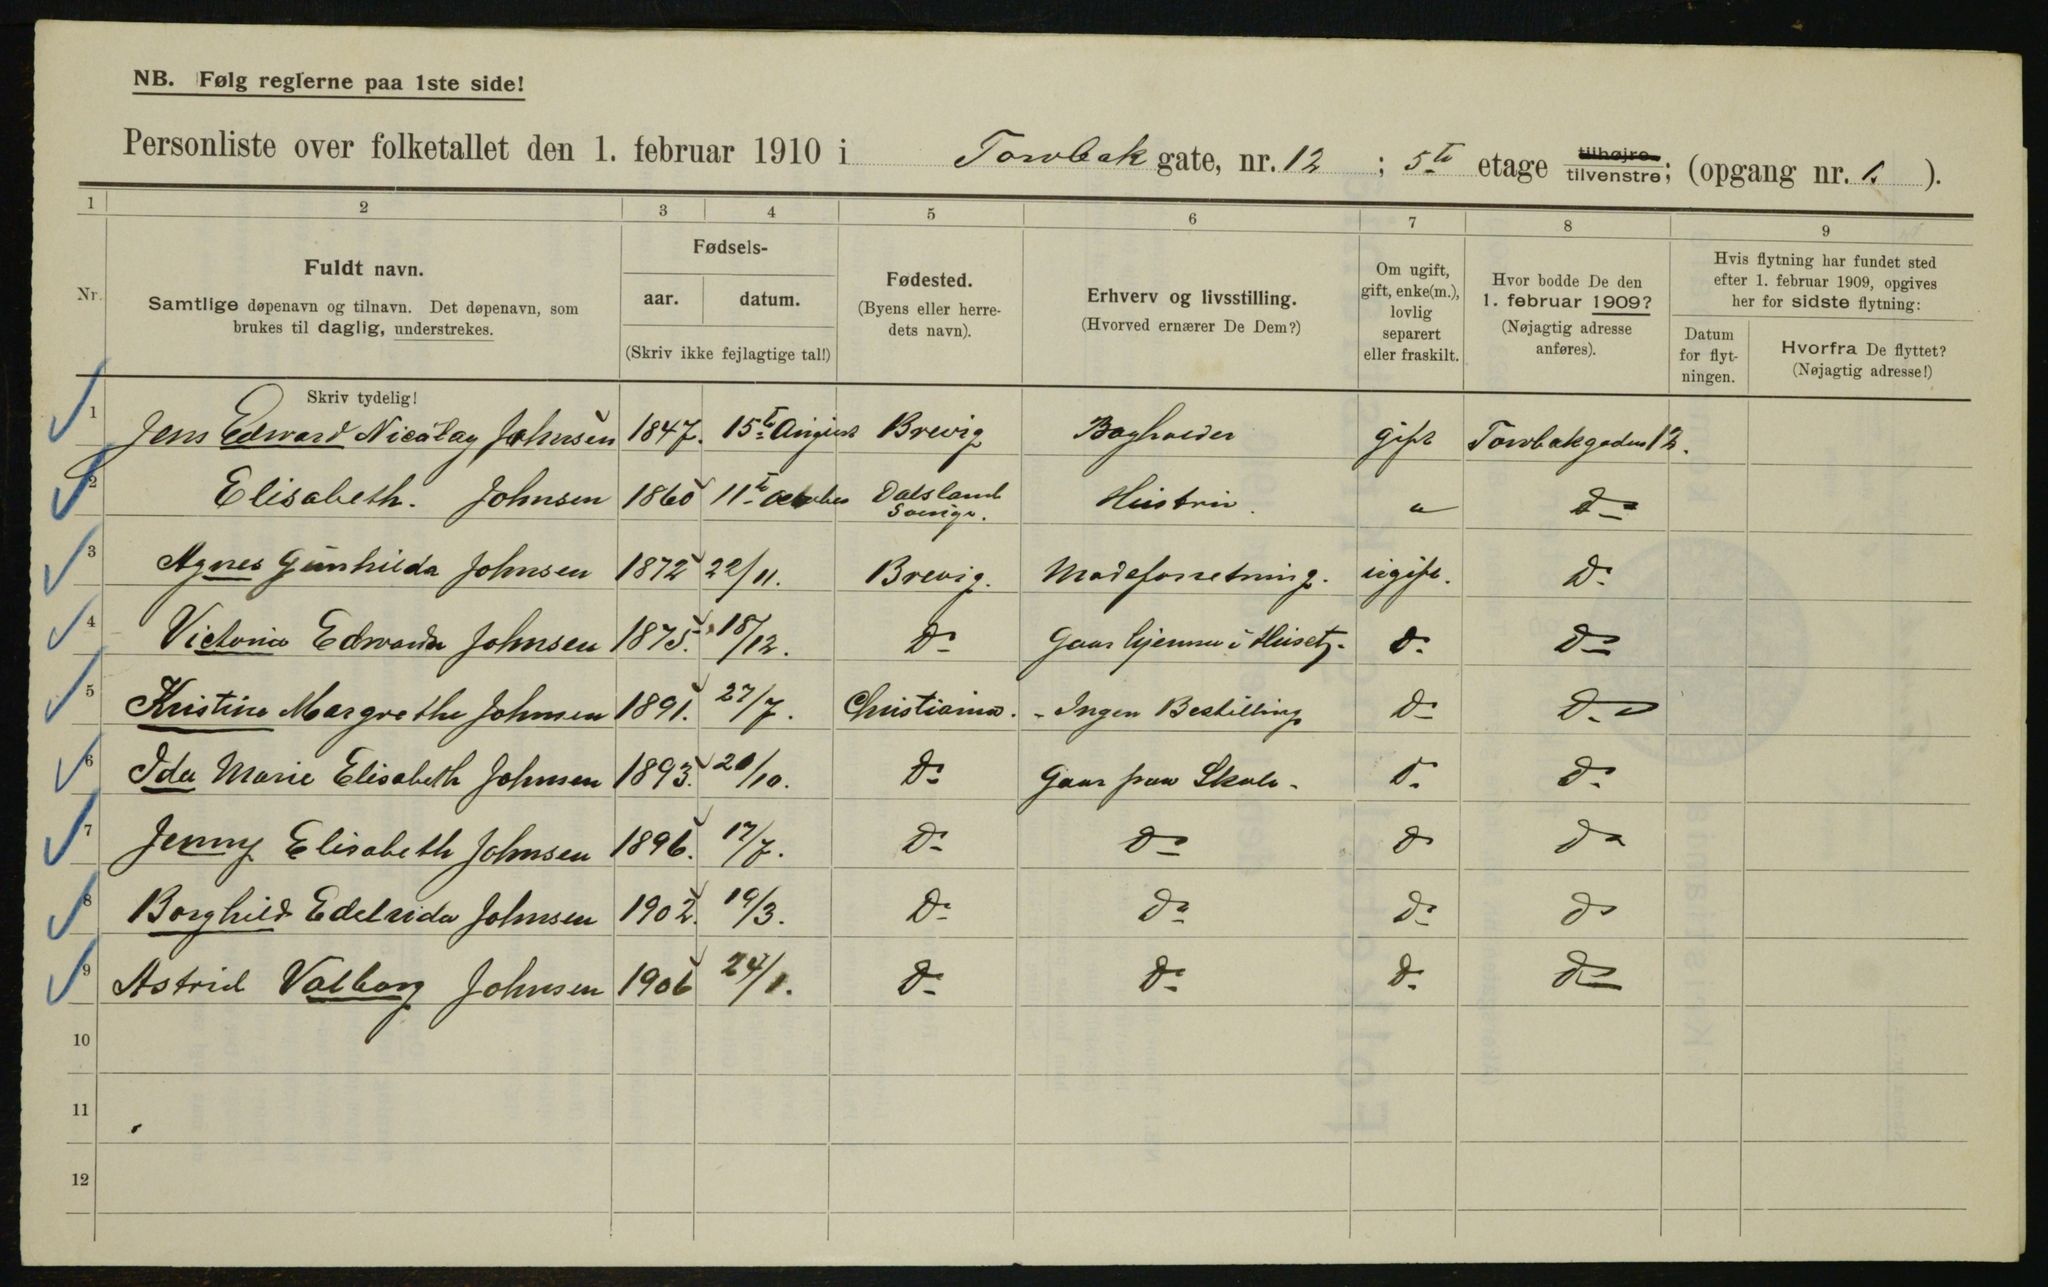 NB. Følg reglerne paa 1ste side!
Personliste over folketallet den 1. februar 1910 i Torvbak gate, nr. 12 ; 5te etage tilhøjre tilvenstre; (opgang nr. 1. ).
1 2 3 4 5 6 7 8 9
Nr.
Fuldt navn.
Samtlige døpenavn og tilnavn. Det døpenavn, som
brukes til daglig, understrekes.
Fødsels-
aar. datum.
(Skriv ikke fejlagtige tal!)
Fødested.
(Byens eller herre-
dets navn).
Erhverv og livsstilling.
(Hvorved ernærer De Dem?)
Om ugift,
gift, enke(m.),
lovlig
separert
eller fraskilt.
Hvor bodde De den
1. februar 1909?
(Nøjagtig adresse
anføres).
Hvis flytning har fundet sted
efter 1. februar 1909, opgives
her for sidste flytning:
Datum
for flyt-
ningen.
Hvorfra De flyttet?
(Nøjagtig adresse!)
Skriv tydelig!
1 Jens Edward Nicolay Johnsen 1847. 15te August Brevig Bogholder gift Torvbakgaden 12.
2 Elisabeth. Johnsen 1860 11te October Dalsland Sverige. Hustru. " Do
3 Agnes Gunhilda Johnsen 1872 22/11. Brevig. Modeforretning. ugift. Do
4 Victoria Edwarda Johnsen 1875. 18/12. Do Gaar hjemme i Huset. Do Do
5 Kristine Margrethe Johnsen 1891. 27/7. Christiania. - Ingen Bestilling Do Do
6 Ida Marie Elisabeth Johnsen 1893. 20/10. Do Gaar paa Skole. Do Do
7 Jenny Elisabeth Johnsen 1896. 17/7. Do Do Do Do
8 Borghild Edelrida Johnsen 1902. 19/3. Do Do Do Do
9 Astrid Valborg Johnsen 1906 24/1. Do Do Do Do
10
11
12